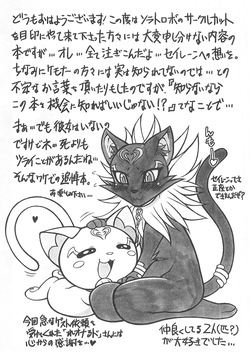 どうもおはようございます！この度はソラトロボのサークルカット
を目印にやって来て下さった方々には大変申し分けない内容の
本ですが…オレ…全て注ぎこんだよ…セイレーンへの想いを。
ちなみにケモナーの方々には実は知られてないのでは…との
不安なお言葉も頂いたりもしたのですが、「知らないなら
この本を機会に知ればいいじゃない！？」ってなことで…
まぁ…でも彼女はいないの
ですけどネ…死よりも
ツライことがあるんだね…
そんなワケでの追悼本。
お楽しみ下さい
セイレーンって
正座とか
できるんだぜ？
今回急なゲスト依頼を
さんには
心からの感謝を…♡
仲良くしてる2人(匹？)
が大好きでした…